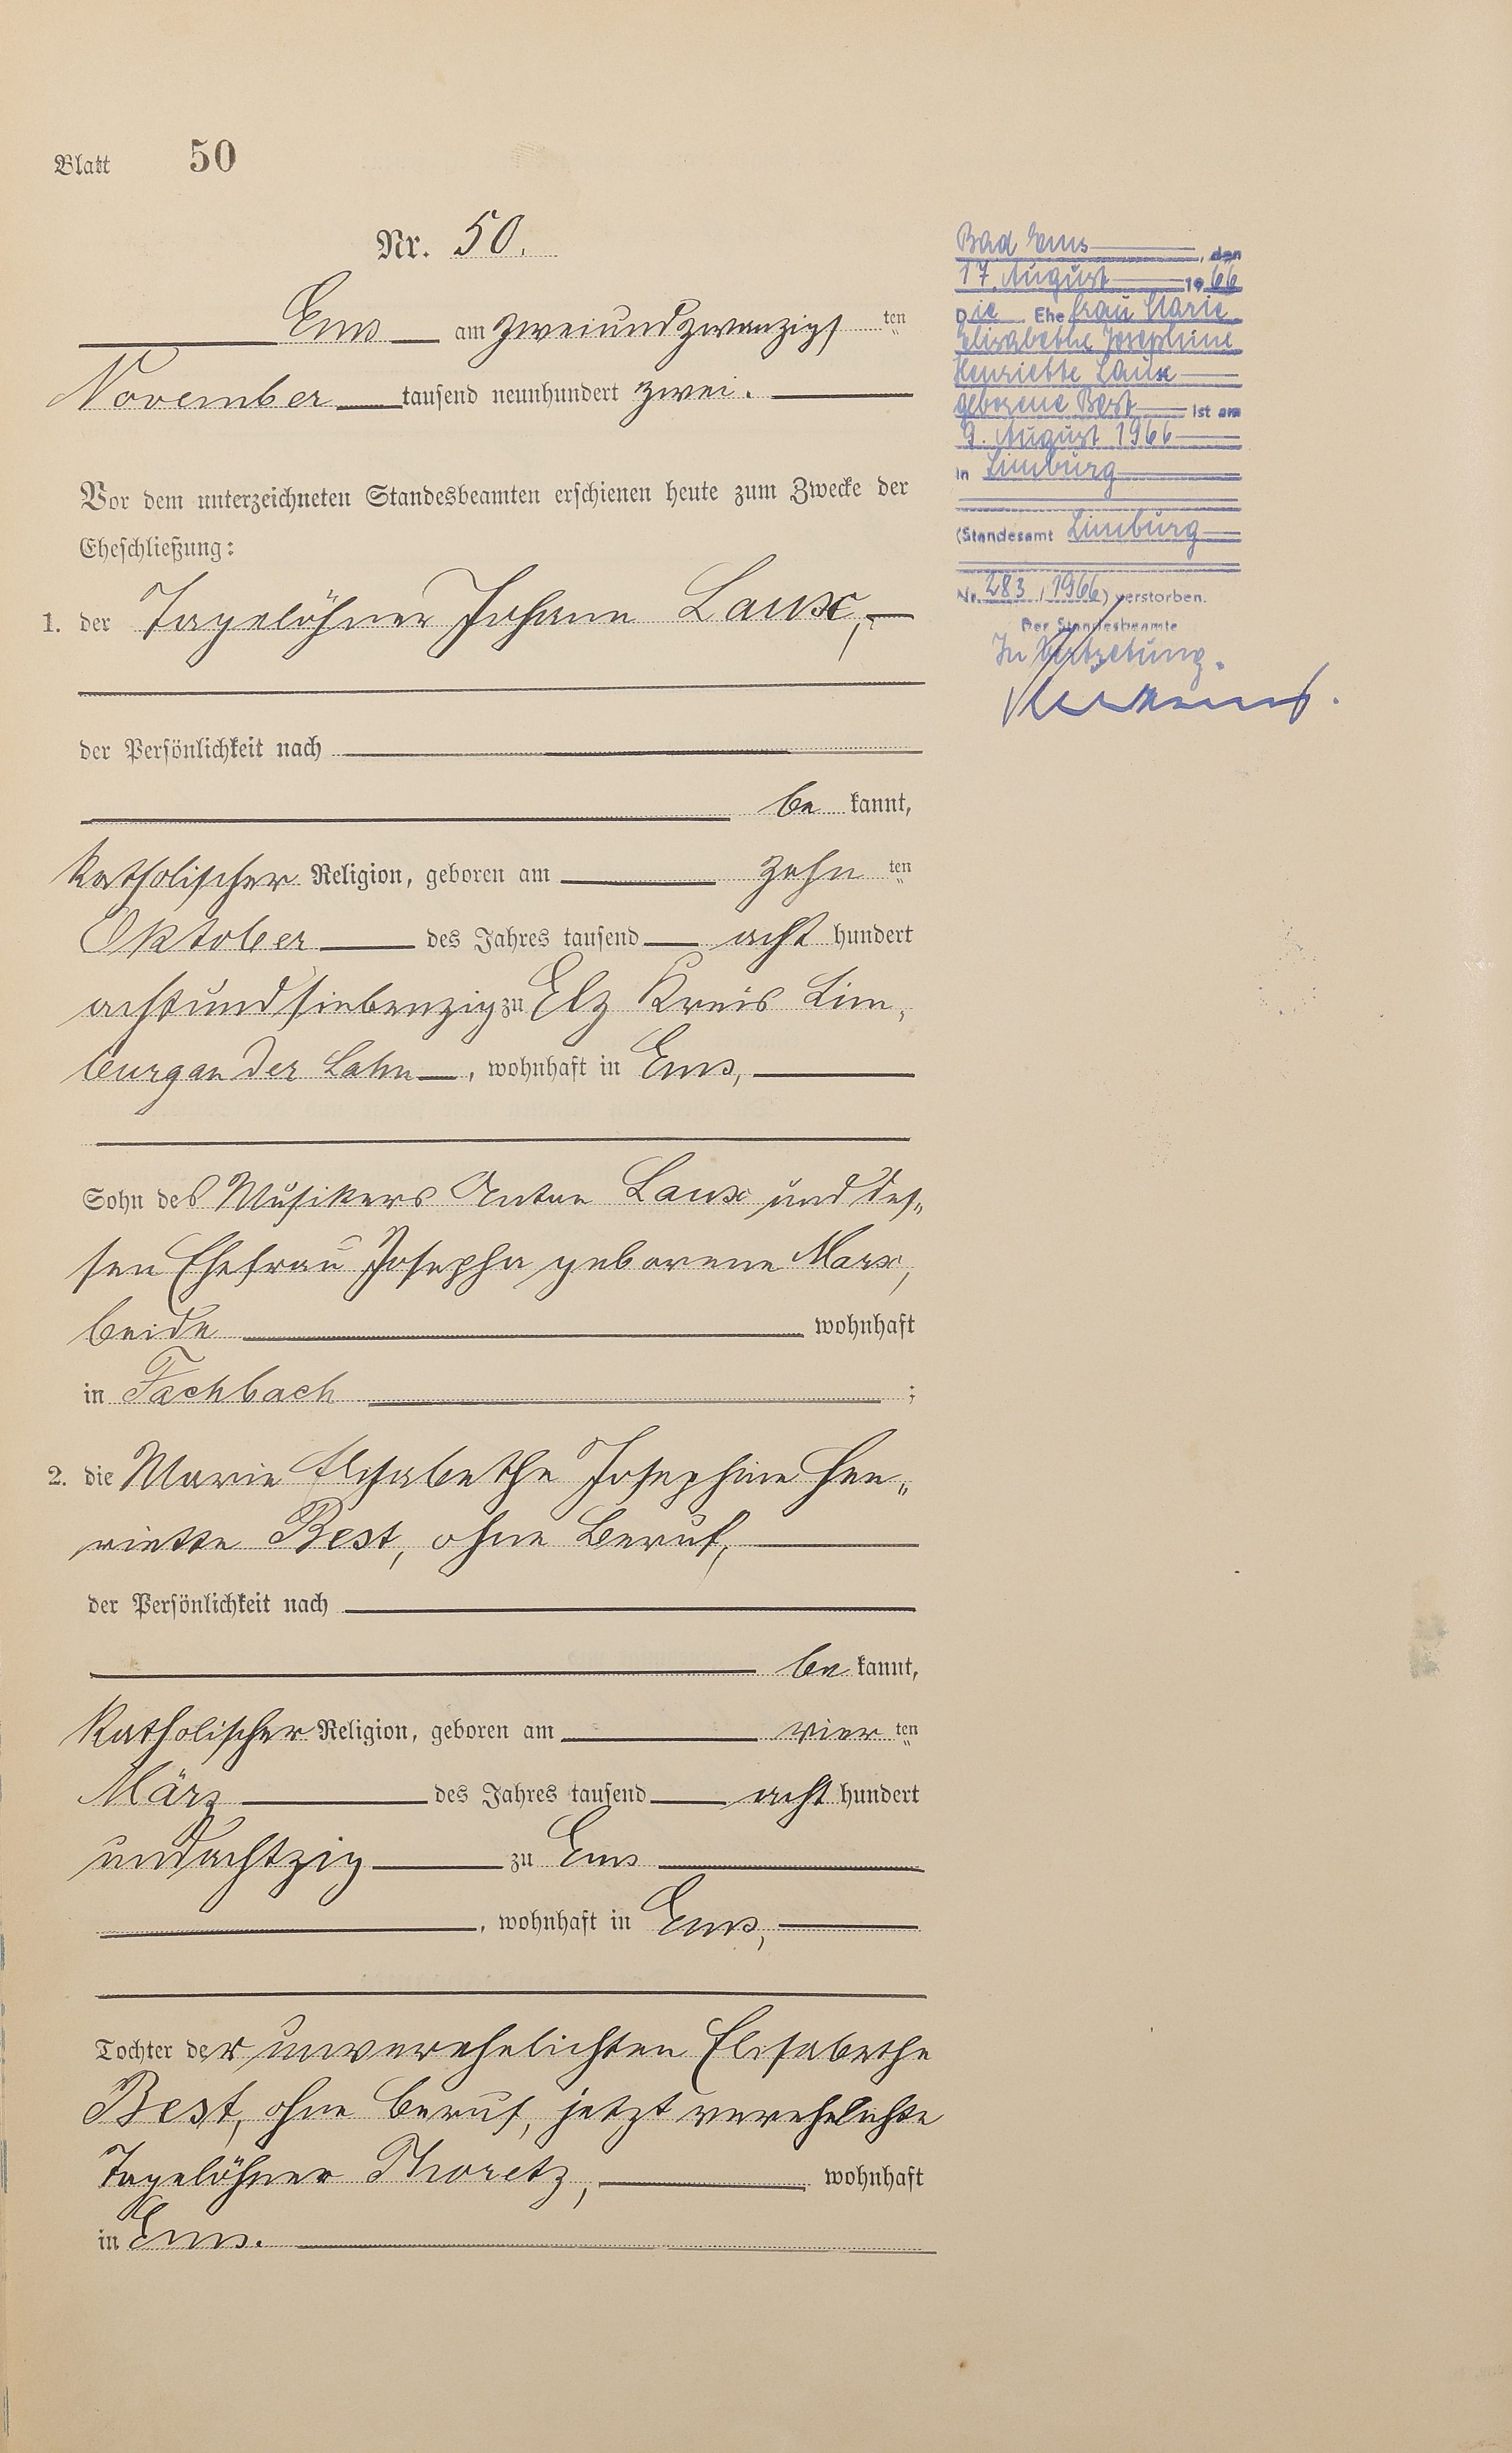 Blatt 50
Nr. 50.
Ems am zweiundzwanzigs ten
November tausend neunhundert zwei.
Vor dem unterzeichneten Standesbeamten erschienen heute zum Zwecke der
Eheschließung:
1. der Tagelöhner Johann Laux,
der Persönlichkeit nach
be kannt,
katholischer Religion, geboren am zehn ten
Oktober des Jahres tausend acht hundert
achtundsiebenzig zu Elz Kreis Lim-
burg an der Lahn, wohnhaft in Ems,
Sohn des Musikers Anton Laux und des-
sen Ehefrau Josepha geborene Marx,
beide wohnhaft
in Fachbach ;
2. die Marie Elisabethe Josephine Hen-
riette Best, ohne Beruf,
der Persönlichkeit nach
be kannt,
katholischer Religion, geboren am vier ten
März des Jahres tausend acht hundert
undachtzig zu Ems
, wohnhaft in Ems,
Tochter der unverehelichten Elisabethe
Best, ohne Beruf, jetzt verehelichte
Tagelöhner Thoretz, wohnhaft
in Ems.
Bad Ems, den
17. August 1966
Die Ehefrau Marie
Elisabethe Josephine
Henriette Laux
geborene Best ist am
9. August 1966
in Limburg
(Standesamt Limburg
Nr. 283 / 1966) verstorben.
Der Standesbeamte
In Vertretung.